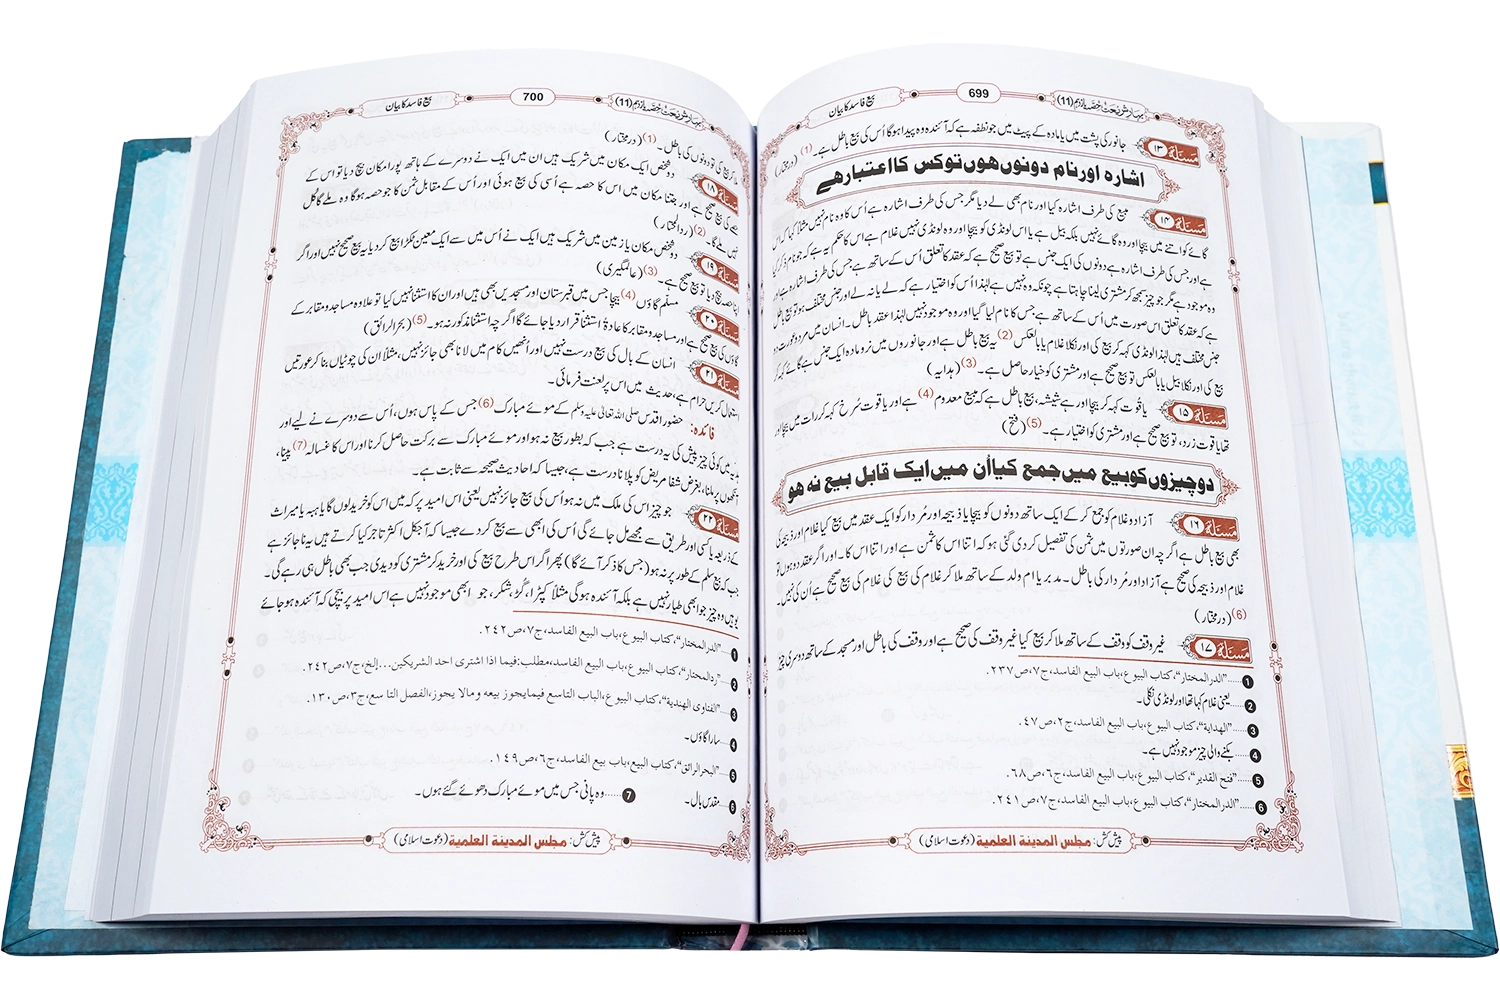 بہارِ شریعت حصّہ یازدہم (11)
699
بیع فاسد کا بیان
مسئلہ ۱۳ جانور کی پشت میں یا مادہ کے پیٹ میں جو نطفہ ہے کہ آئندہ وہ پیدا ہوگا اُس کی بیع باطل ہے۔(1) (درمختار)
اشارہ اور نام دونوں ھوں تو کس کا اعتبار ھے
مسئلہ ۱۴ مبیع کی طرف اشارہ کیا اور نام بھی لے دیا مگر جس کی طرف اشارہ ہے اُس کا وہ نام نہیں مثلاً کہا کہ اس
گائے کو اتنے میں بیچا اور وہ گائے نہیں بلکہ بیل ہے یا اس لونڈی کو بیچا اور وہ لونڈی نہیں غلام ہے اس کا حکم یہ ہے کہ جو نام ذکر کیا
ہے اور جس کی طرف اشارہ ہے دونوں کی ایک جنس ہے تو بیع صحیح ہے کہ عقد کا تعلق اُس کے ساتھ ہے جس کی طرف اشارہ ہے اور
وہ موجود ہے مگر جو چیز سمجھ کر مشتری لینا چاہتا ہے چونکہ وہ نہیں ہے لہٰذا اُس کو اختیار ہے کہ لے یا نہ لے اور جنس مختلف ہو تو بیع باطل
ہے کہ عقد کا تعلق اس صورت میں اُس کے ساتھ ہے جس کا نام لیا گیا اور وہ موجود نہیں لہٰذا عقد باطل۔ انسان میں مرد و عورت دو
جنس مختلف ہیں لہٰذا لونڈی کہہ کر بیع کی اور نکلا غلام یا بالعکس(2) یہ بیع باطل ہے اور جانوروں میں نر و مادہ ایک جنس ہے گائے کہہ کر
بیع کی اور نکلا بیل یا بالعکس تو بیع صحیح ہے اور مشتری کو خیار حاصل ہے۔(3) (ہدایہ)
مسئلہ ۱۵ یاقوت کہہ کر بیچا اور ہے شیشہ، بیع باطل ہے کہ مبیع معدوم(4) ہے اور یاقوت سُرخ کہہ کر رات میں بیچا اور
تھا یاقوت زرد، تو بیع صحیح ہے اور مشتری کو اختیار ہے۔(5) (فتح)
دو چیزوں کو بیع میں جمع کیا اُن میں ایک قابل بیع نہ ھو
مسئلہ ۱۶ آزاد و غلام کو جمع کر کے ایک ساتھ دونوں کو بیچا یا ذبیحہ اور مُردار کو ایک عقد میں بیع کیا غلام اور ذبیحہ کی
بھی بیع باطل ہے اگرچہ ان صورتوں میں ثمن کی تفصیل کر دی گئی ہو کہ اتنا اس کا ثمن ہے اور اتنا اس کا۔ اور اگر عقد دو ہوں تو
غلام اور ذبیحہ کی صحیح ہے آزاد اور مُردار کی باطل۔ مدبر یا ام ولد کے ساتھ ملا کر غلام کی بیع کی غلام کی بیع صحیح ہے اُن کی نہیں۔
(6) (درمختار)
مسئلہ ۱۷ غیر وقف کو وقف کے ساتھ ملا کر بیع کیا غیر وقف کی صحیح ہے اور وقف کی باطل اور مسجد کے ساتھ دوسری چیز
1 ……"الدرالمختار"، کتاب البیوع، باب البیع الفاسد، ج۷، ص۲۳۷.
2 ……یعنی غلام کہا تھا اور لونڈی نکلی۔
3 ……"الھدایۃ"، کتاب البیوع، باب البیع الفاسد، ج۲، ص۴۷.
4 ……بکنے والی چیز موجود نہیں ہے۔
5 ……"فتح القدیر"، کتاب البیوع، باب البیع الفاسد، ج۶، ص۶۸.
6 ……"الدرالمختار"، کتاب البیوع، باب البیع الفاسد، ج۷، ص۲۴۱.
پیش کش: مجلس المدینۃ العلمیۃ (دعوت اسلامی)
بہارِ شریعت حصّہ یازدہم (11)
700
بیع فاسد کا بیان
ملا کر بیع کی تو دونوں کی باطل۔(1) (درمختار)
مسئلہ ۱۸ دو شخص ایک مکان میں شریک ہیں ان میں ایک نے دوسرے کے ہاتھ پورا مکان بیچ دیا تو اس کے
حصے کی بیع صحیح ہے اور جتنا مکان میں اس کا حصہ ہے اُسی کی بیع ہوئی اور اُس کے مقابل ثمن کا جو حصہ ہوگا وہ ملے گا کُل
نہیں ملے گا۔(2) (ردالمحتار)
مسئلہ ۱۹ دو شخص مکان یا زمین میں شریک ہیں ایک نے اُس میں سے ایک معین ٹکڑا بیع کر دیا یہ بیع صحیح نہیں اور اگر
اپنا حصہ بیچ دیا تو بیع صحیح ہے۔(3) (عالمگیری)
مسئلہ ۲۰ مسلّم گاؤں(4) بیچا جس میں قبرستان اور مسجدیں بھی ہیں اور ان کا استثنا نہیں کیا تو علاوہ مساجد و مقابر کے
گاؤں کی بیع صحیح ہے اور مساجد و مقابر کا عادۃً استثنا قرار دیا جائے گا اگرچہ استثنا مذکور نہ ہو۔(5) (بحرالرائق)
مسئلہ ۲۱ انسان کے بال کی بیع درست نہیں اور اُنھیں کام میں لانا بھی جائز نہیں، مثلاً ان کی چوٹیاں بنا کر عورتیں
استعمال کریں حرام ہے، حدیث میں اس پر لعنت فرمائی۔
فائدہ: حضور اقدس صلی اللہ تعالیٰ علیہ وسلم کے موئے مبارک(6) جس کے پاس ہوں، اُس سے دوسرے نے لیے اور
ہدیہ میں کوئی چیز پیش کی یہ درست ہے جب کہ بطور بیع نہ ہو اور موئے مبارک سے برکت حاصل کرنا اور اس کا غسالہ(7) پینا،
آنکھوں پر ملنا، بغرض شفا مریض کو پلانا درست ہے، جیسا کہ احادیث صحیحہ سے ثابت ہے۔
مسئلہ ۲۲ جو چیز اس کی ملک میں نہ ہو اُس کی بیع جائز نہیں یعنی اس امید پر کہ میں اس کو خرید لوں گا یا ہبہ یا میراث
کے ذریعہ یا کسی اور طریق سے مجھے مل جائے گی اُس کی ابھی سے بیع کر دے جیسا کہ آجکل اکثر تاجر کیا کرتے ہیں یہ ناجائز ہے
جب کہ بیع سلم کے طور پر نہ ہو (جس کا ذکر آئے گا) پھر اگر اس طرح بیع کی اور خرید کر مشتری کو دیدی جب بھی باطل ہی رہے گی۔
یوہیں وہ چیز جو ابھی طیار نہیں ہے بلکہ آئندہ ہوگی مثلاً کپڑا، گُڑ، شکر، جو ابھی موجود نہیں ہے اس امید پر بیچی کہ آئندہ ہو جائے
1 ……"الدرالمختار"، کتاب البیوع، باب البیع الفاسد، ج۷، ص۲۴۲.
2 ……"ردالمحتار"، کتاب البیوع، باب البیع الفاسد، مطلب: فیما اذا اشتری احد الشریکین...إلخ، ج۷، ص۲۴۲.
3 ……"الفتاوی الھندیۃ"، کتاب البیوع، الباب التاسع فیما یجوز بیعہ ومالا یجوز، الفصل التاسع، ج۳، ص۱۳۰.
4 ……سارا گاؤں۔
5 ……"البحرالرائق"، کتاب البیع، باب بیع الفاسد، ج۶، ص۱۴۹.
6 ……مقدس بال۔ 7 ……وہ پانی جس میں موئے مبارک دھوئے گئے ہوں۔
پیش کش: مجلس المدینۃ العلمیۃ (دعوت اسلامی)